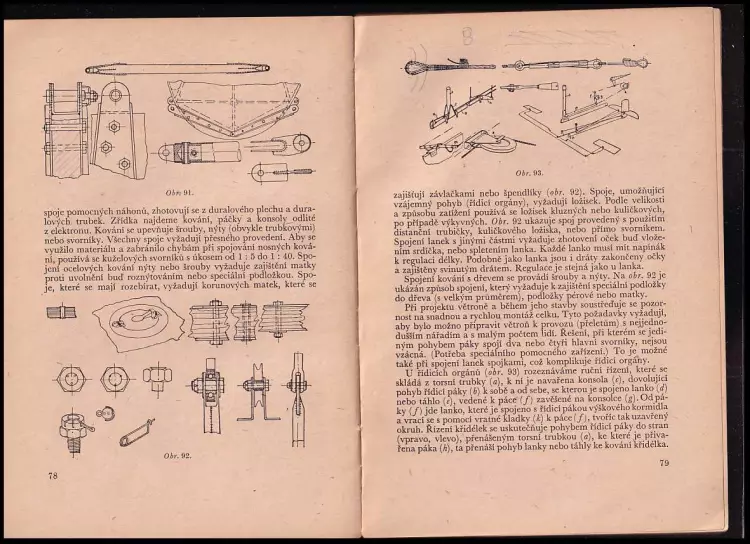 Obr. 91.
spoje pomocných náhonů, zhotovují se z duralového plechu a dura-
lových trubek. Zřídka najdeme kování, páčky a konsoly odlité
z elektronu. Kování se upevňuje šrouby, nýty (obvykle trubkovými)
nebo svorníky. Všechny spoje vyžadují přesného provedení. Aby se
využilo materiálu a zabránilo chybám při spojování nosných ková-
ní, používá se kuželových svorníků s úkosem od 1 : 5 do 1 : 40. Spo-
jení ocelových kování nýty nebo šrouby vyžaduje zajištění matky
proti uvolnění buď roznýtováním nebo speciální podložkou. Spo-
je, které se mají rozebírat, vyžadují korunových matek, které se
Obr. 92.
78
B
Obr. 93.
zajišťují závlačkami nebo špendlíky (obr. 92). Spoje, umožňující
vzájemný pohyb (řídicí orgány), vyžadují ložisek. Podle velikosti
a způsobu zatížení používá se ložisek kluzných nebo kuličkových,
po případě výkyvných. Obr. 92 ukazuje spoj provedený s použitím
distanční trubičky, kuličkového ložiska, nebo přímo svorníkem.
Spojení lanek s jinými částmi vyžaduje zhotovení oček buď vlože-
ním srdíčka, nebo spletením lanka. Každé lanko musí mít napínák
k regulaci délky. Podobně jako lanka jsou i dráty zakončeny očky
a zajištěny svinutým drátem. Regulace je stejná jako u lanka.
Spojení kování s dřevem se provádí šrouby a nýty. Na obr. 92 je
ukázán způsob spojení, který vyžaduje k zajištění speciální podložky
do dřeva (s velkým průměrem), podložky pérové nebo matky.
Při projektu větroně a během jeho stavby soustřeďuje se pozor-
nost na snadnou a rychlou montáž celku. Tyto požadavky vyžadují,
aby bylo možno připravit větroň k provozu (přeletům) s nejjedno-
dušším nářadím a s malým počtem lidí. Řešení, při kterém se jedi-
ným pohybem páky spojí dva nebo čtyři hlavní svorníky, nejsou
vzácná. (Potřeba speciálního pomocného zařízení.) To je možné
také při spojení lanek spojkami, což komplikuje řídicí orgány.
U řídicích orgánů (obr. 93) rozeznáváme ruční řízení, které se
skládá z torsní trubky (a), k ní je navařena konsola (c), dovolující
pohyb řídicí páky (b) k sobě a od sebe, se kterou je spojeno lanko (d)
nebo táhlo (e), vedené k páce (f) zavěšené na konsolce (g). Od pá-
ky (f) jde lanko, které je spojeno s řídicí pákou výškového kormidla
a vrací se s pomocí vratné kladky (k) k páce (f), tvoříc tak uzavřený
okruh. Řízení křidélek se uskutečňuje pohybem řídicí páky do stran
(vpravo, vlevo), přenášeným torsní trubkou (a), ke které je přiva-
řena páka (h), ta přenáší pohyb lanky nebo táhly ke kování křidélka.
79